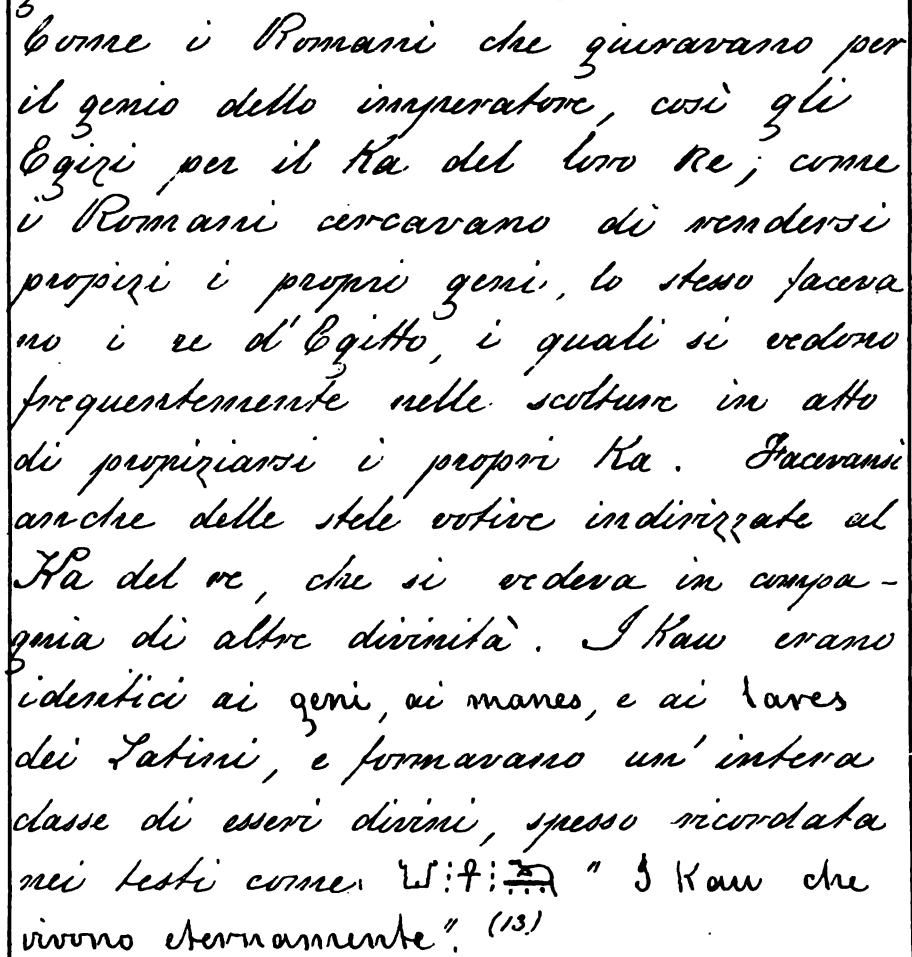 Come i Romani che giuravano per
il genio dello imperatore, così gli
Egizi per il Ka del loro Re; come
i Romani cercavano di rendersi
propizi i propri geni, lo stesso faceva
no i re d'Egitto, i quali si vedono
frequentemente nelle scolture in atto
di propiziarsi i propri Ka. Facevansi
anche delle stele votive indirizzate al
Ka del re, che si vedeva in compa-
gnia di altre divinità. I Kau erano
identici ai geni, ai manes, e ai lares
dei Latini, e formavano un'intera
classe di esseri divini, spesso ricordata
nei testi come " I Kau che
vivono eternamente". (13)